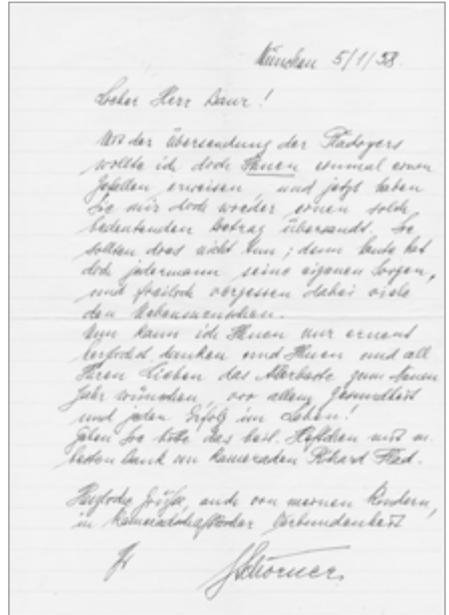 München 5/1/58.
Lieber Herr Baur!
Mit der Übersendung der Plädoyers
wollte ich doch Ihnen einmal einen
Gefallen erweisen, und jetzt haben
Sie mir doch wieder einen solch
bedeutenden Betrag übersandt. Sie
sollten das nicht tun; denn heute hat
doch jedermann seine eigenen Sorgen,
und freilich vergessen dabei viele
den Nebenmenschen.
Nun kann ich Ihnen nur erneut
herzlichst danken und Ihnen und all
Ihren Lieben das Allerbeste zum Neuen
Jahr wünschen, vor allem Gesundheit
und jeden Erfolg im Leben!
Geben Sie bitte das beil. Heftchen mit m.
besten Dank an Kameraden
Herzliche Grüße, auch von meinen Kindern,
in kameradschaftlicher Verbundenheit
Ihr Schörner.